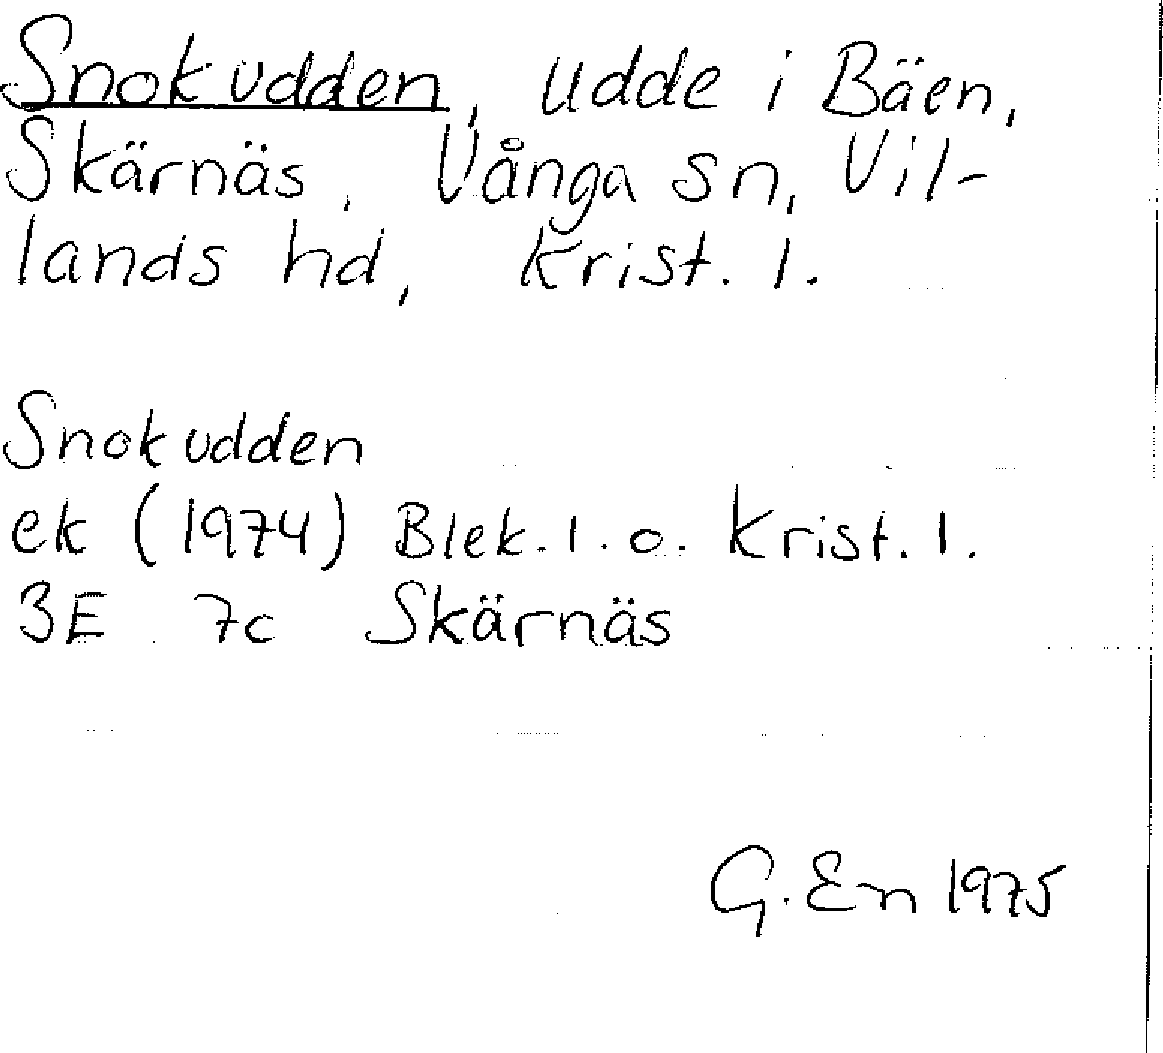 Snokudden, udde i Bäen,
Skärnäs, Vånga sn, Vil-
lands hd, Krist. l.
Snokudden
ek (1974) Blek. l. o. Krist. l.
3E 7c Skärnäs
G. En 1975